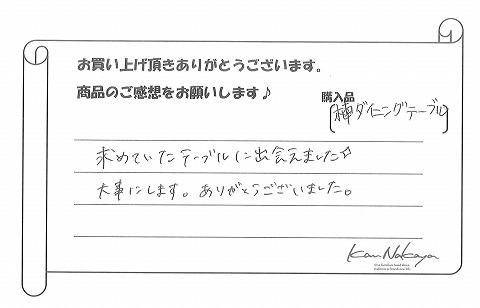 お買い上げ頂きありがとうございます。
商品のご感想をお願いします♪
購入品
[欅ダイニングテーブル]
求めていたテーブルに出会えました☆
大事にします。ありがとうございました。
Kan Nakaya